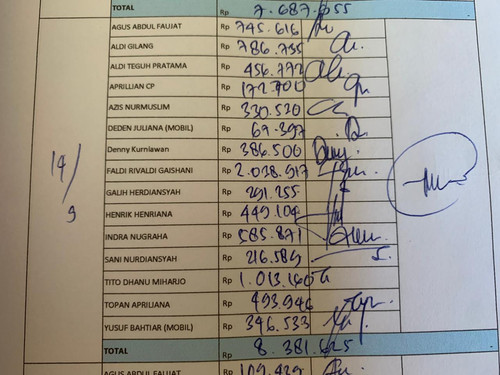 TOTAL Rp 7.687.855
AGUS ABDUL FAUJAT Rp 745.616
ALDI GILANG Rp 786.735
ALDI TEGUH PRATAMA Rp 456.772
APRILLIAN CP Rp 172.700
AZIS NURMUSLIM Rp 330.520
DEDEN JULIANA (MOBIL) Rp 69.397
Denny Kurniawan Rp 386.500
FALDI RIVALDI GAISHANI Rp 2.028.917
GALIH HERDIANSYAH Rp 291.255
HENRIK HENRIANA Rp 449.104
14/9
INDRA NUGRAHA Rp 585.871
SANI NURDIANSYAH Rp 216.589
TITO DHANU MIHARJO Rp 1.013.160
TOPAN APRILIANA Rp 493.946
YUSUF BAHTIAR (MOBIL) Rp 346.533
TOTAL Rp 8.381.625
AGUS ABDUL FAUJAT Rp 109.429